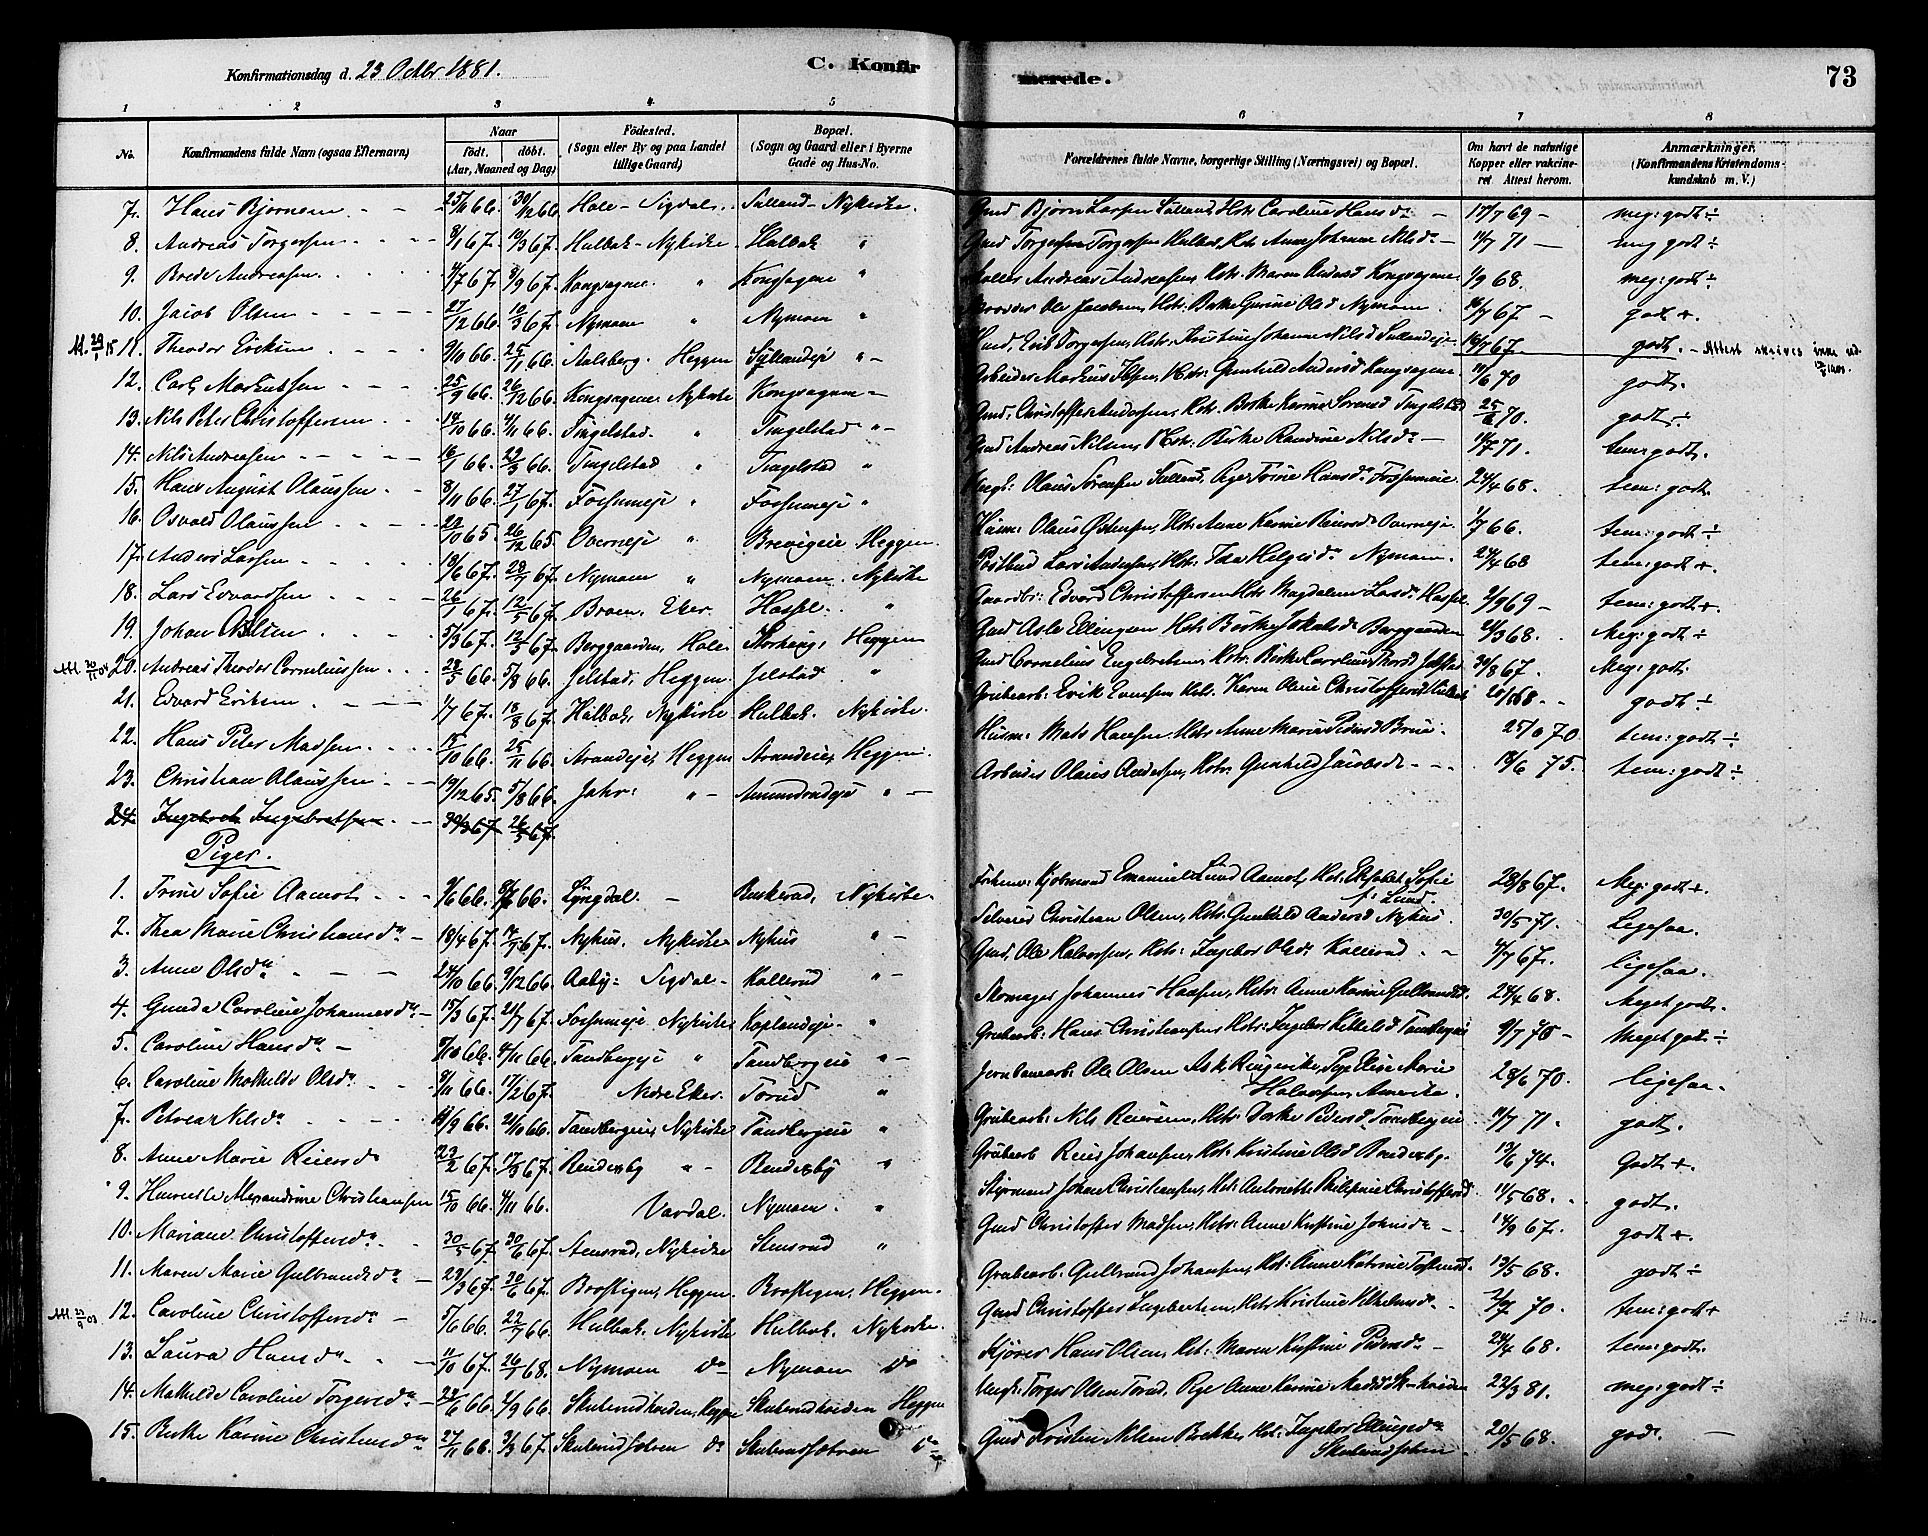 Konfirmationsdag d. 23 Octbr 1881.
C. Konfirmerede.
73
1 2 3 4 5 6 7 8
No.
Konfirmandens fulde Navn (ogsaa Efternavn)
Naar
födt. döbt.
(Aar, Maaned og Dag)
Födested.
(Sogn eller By og paa Landet
tillige Gaard)
Bopæl.
(Sogn og Gaard eller i Byerne
Gade og Hus-No.
Forældrenes fulde Navne, borgerlige Stilling (Næringsvei) og Bopæl.
Om havt de naturlige
Kopper eller vakcine-
ret Attest herom.
Anmærkninger,
(Konfirmandens Kristendoms-
kundskab m. V.)
7. Hans Bjørnsen 25/11 66. 30/12 66 Hole - Sigdal. Sælland - Nykirke. Gmd Bjørn Larsen Sælland, Hstr Caroline Hansd. 17/7 69 - meg: godt ÷
8. Andreas Torgersen 8/1 67. 10/3 67. Hulbak - Nykirke Hulbak " Gmd Torgersen Hulbak, Hstr Anne Johanne Nilsd. 14/7 71 - meg godt ÷
9. Brede Andreasen 4/7 67. 8/9 67. Kongsagene " Kongsagene " Andreas Andreasen, Hstr. Maren Kongsagene 1/9 68. meg: godt ÷
10. Jacob Olsen 27/12 66. 10/3 67. Nymoen " Nymoen " Ole Jacobsen, Hstr: Berthe Gurine Olsd Nymoen 16/7 67 - godt +.
M. 29/1 15 11. Theodor Eriksen 9/10 66 25/11 66. Aalsberg. Heggen Sællandeje " - Erik Torgersen, Hstr. Kristine Johanne Nilsd Sællandeje 18/7 67 - godt. - Attest skrives
12. Carl Markussen 25/9 66. 26/12 66. Kongsagene Nykirke Kongsagene - Arbeider Markus Hstr. Gunhild Andersd Kongsagene 10/6 70 godt.
13. Nils Peter Christoffersen 14/10 66. 4/11 66. Tingelstad. " Tingelstad " - Gmd. Christoffer Andersen, Hstr. Berthe Karine Sørensd Tingelstad 25/6 70. godt ÷
14. Nils Andreasen 16/1 66. 29/3 66. Tingelstad " Tingelstad " Gmd Andreas Nilsen, Hstr: Berthe Randine Nilsd - 14/7 71. tem: godt.
15. Hans August Olaussen 8/11 66. 27/1 67. Fossumeje " Fossumeje " Ungk: Olaus Sørensen Sælland, Pige Trine Hansd. Fossumeie 24/4 68. tem: godt.
16. Osvald Olaussen 22/10 65. 26/12 65. Overneje " Brevigeie Heggen. Husm: Olaus Østensen, Hstr: Anne Karine Overneje. 1/7 66. tem: godt ÷
17. Anders Larsen 19/6 67. 28/7 67. Nymoen " Nymoen. Nykirke Postbud Lars Andersen, Hstr: Thea Helgesd. Nymoen. 24/4 68 tem: godt +.
18. Lars Edvardsen 26/1 67. 12/5 67. Braen. Eker. Hassel. " Gaardbr: Edvard Christoffersen Hstr Magdalene Larsd Hassel. 2/9 69 - tem: godt +.
19. Johan 5/3 67. 12/5 67. Berggaarden, Hole Storhaug, Heggen Gmd Asle Ellingsen Hstr. Berthe Jakobsd Berggaarden 2/3 68. Meg: godt ÷
20. Andreas Theodor Corneliussen 28/5 66. 5/8 66. Jelstad, Heggen. Jelstad. " Gmd Cornelius Engebretsen, Hstr. Berthe Caroline Jelstad 30/8 67. Meg: godt
21. Edvard Eriksen 1/7 67. 18/8 67. Hulbak, Nykirke Hulbak. Nykirke. Grubearb: Erik Evensen Hstr. Karen Oline Christoffersd Hulbak godt ÷
22. Hans Peter Madsen 15/10 66. 25/11 66. Strandeje, Heggen Strandeie, Heggen. Husm: Mads Hansen, Hstr. Anne Maria Pedersd 25/6 70. tem: godt ÷
23. Christian Olaussen 19/12 65. 5/8 66. Jahr: " - Amundrudeje " - Arbeider Olaus Andersen, Hstr. Gunhild Jacobsd - 18/6 75. tem: godt ÷
24. Ingebret Ingebretsen 30/3 67 26/5 67.
Piger.
1. Trine Sofie Aamot 9/6 66. 66. Lyngdal. - Buskerud, Nykirke. Emanuel Lund Aamot, Hstr: Elisabet Sofie f. Lund. 28/8 67. Meg: godt +.
2. Thea Marie Christiansd. 18/4 67. 14/7 67. Nyhus. Nykirke Nyhus " - Selveier Christian Olsen, Hstr. Gunhild Andersd Nyhus 30/5 71. Ligesaa.
3. Anne Olsd. 24/10 66. 9/12 66. Aaby: Sigdal - Kollerud " - Gmd. Ole Halvorsen, Hstr: Ingebor Olsd. Kollerud 4/7 67. ligesaa.
4. Gunda Caroline Johannesd. 15/3 67. 21/7 67. Fossumeje Nykirke Koplandeje. " Skomager Johannes Hansen, Hstr. Anne Karine Gulbrandsd. 24/4 68. Meget godt.
5. Caroline Hansd. 5/10 66. 4/11 66. Tandbergeje " Tandbergeie " - Grubearb: Hans Christiansen, Hstr: Ingebor Kittelsd Tandbergeie 9/7 70 - Meget godt ÷
6. Caroline Mathilde Olsd. 9/11 66. 17/2 67. Nedre Eker. Torud " Jernbanearb: Ole Olsen Ask Ringerike, Pige Elise Marie Halvorsen, Amerika. 28/6 70. ligesaa.
7. Petrea Nilsd. 11/9 66. 21/10 66. Tandbergeie, Nykirke Tandbergeie " Grubearb: Nils Reiersen, Hstr. Dorthe Pedersd. Tandbergeie 11/7 71. godt.
8. Anne Marie Reiersd. 22/2 67. 17/3 67. Rendesby " - Rendesby " Grubearb Reier Johansen, Hstr. Kristine Olsd Rendesby. 13/6 74. Godt +.
9. Henriette Alexandrine Christiansen 15/10 66. 4/11 66. Vardal. Nymoen. " Styrmand Johan Christiansen, Hstr Antonette Philipine Christoffersd 11/5 68. godt.
10. Mariane Christoffersd. 30/5 67. 30/6 67. Stensrud, Nykirke Stensrud " Gmd Christoffer Madsen, Hstr: Anne Kristine Johnsd. - 14/9 67. godt +.
11. Maren Marie Gulbrandsd. - 29/3 67. 30/6 67. Brostigen, Heggen. Brostigen, Heggen. Grubearb: Gulbrand Johansen, Hst: Anne Katrine 13/5 68. godt ÷
M. 23/9 03 12. Caroline Christoffersd. - 5/6 66. 22/7 66. Hulbak, Nykirke Hulbak. Nykirke. Gmd Christoffer Ingebretsen, Hstr Kristine Wilhelmsd. - 70. tem: godt +
13. Laura Hansd. 11/10 67. 26/1 68. Nymoen do Nymoen do Kjører Hans Olsen, Hst: Maren Kristine Pedersd. - 24/4 68. tem: godt.
14. Mathilde Caroline Torgersd. - 22/6 66. 2/9 66. Skuterudkveiden, Heggen Skuterudkveiden Heggen Ungk: Torger Olsen Torud, Pige Anne Karine Madsd 22/3 81. meg: godt ÷
15. Berthe Karine Christiansd. 27/11 66. 3/3 67. do do Gmd Kristen Nilsen Bakke, Hst: Ingebor Ellingsd. 20/5 68. godt. -